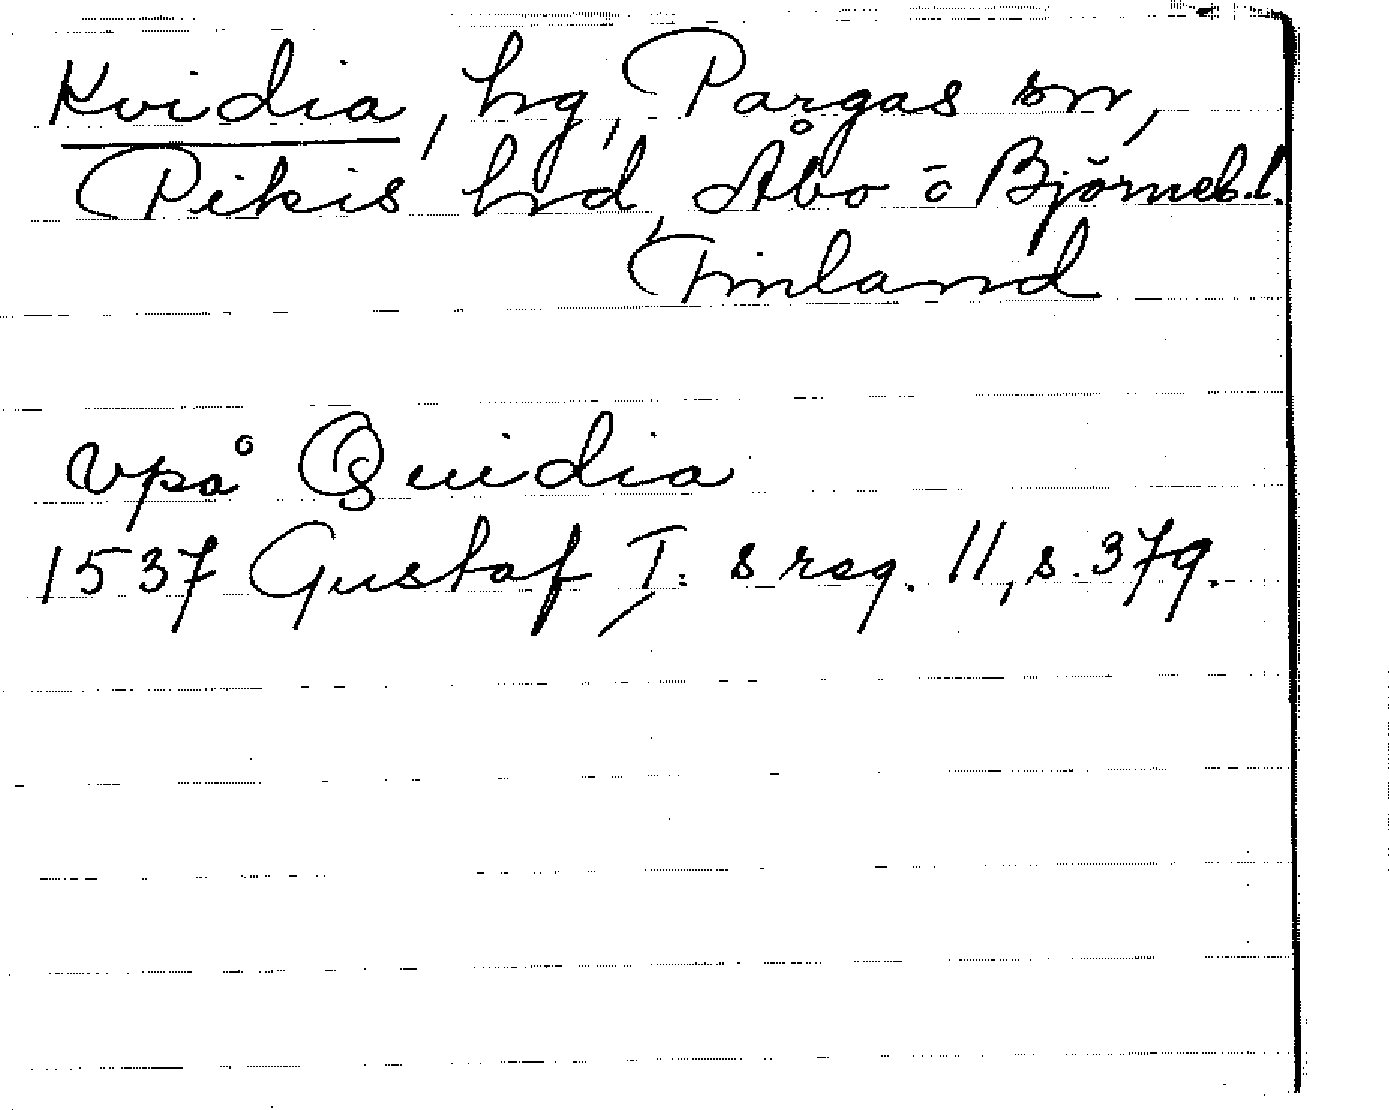 Kvidia, hg, Pargas sn,
Pikis hrd, Åbo o Björneb.l.
Finland
vpå Quidia
1537 Gustaf I: s reg. 11, s. 379.